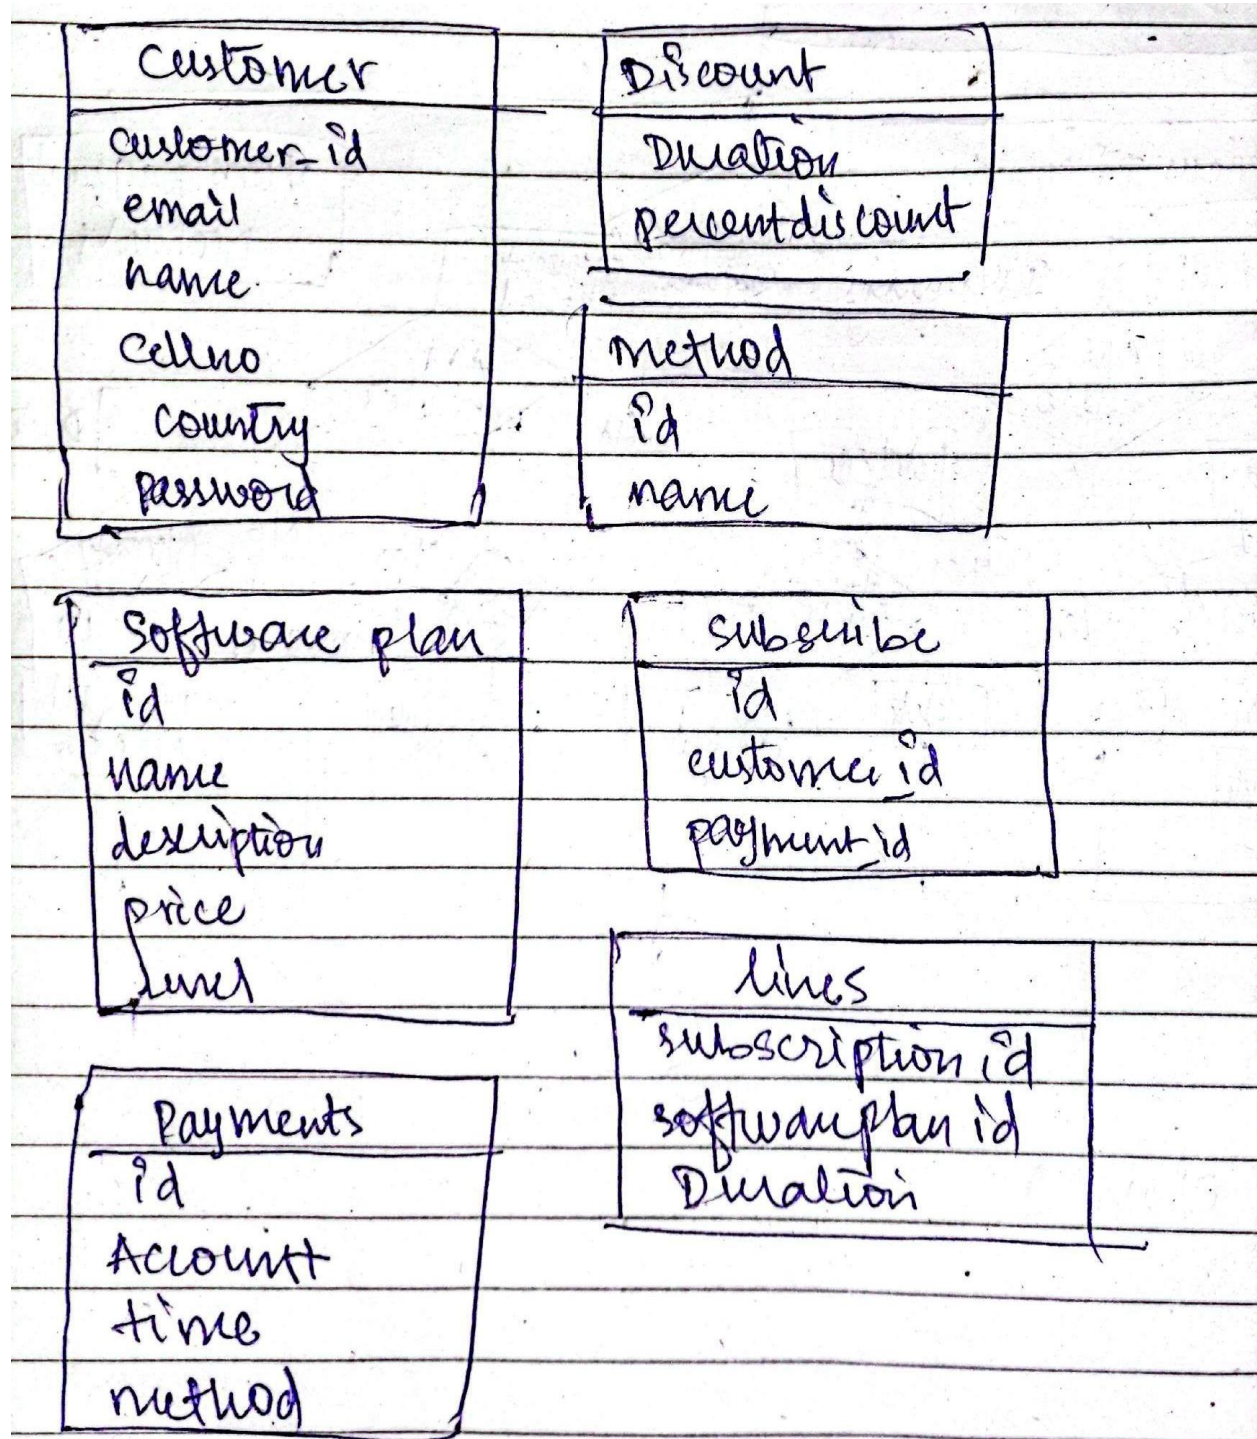 Customer
customer_id
email
name
Cellno
country
password
Discount
Duration
percentdiscount
method
id
name
Software plan
id
name
description
price
level
subscribe
id
customer_id
payment_id
lines
subscription id
softwareplan id
Duration
Payments
id
Account
time
method